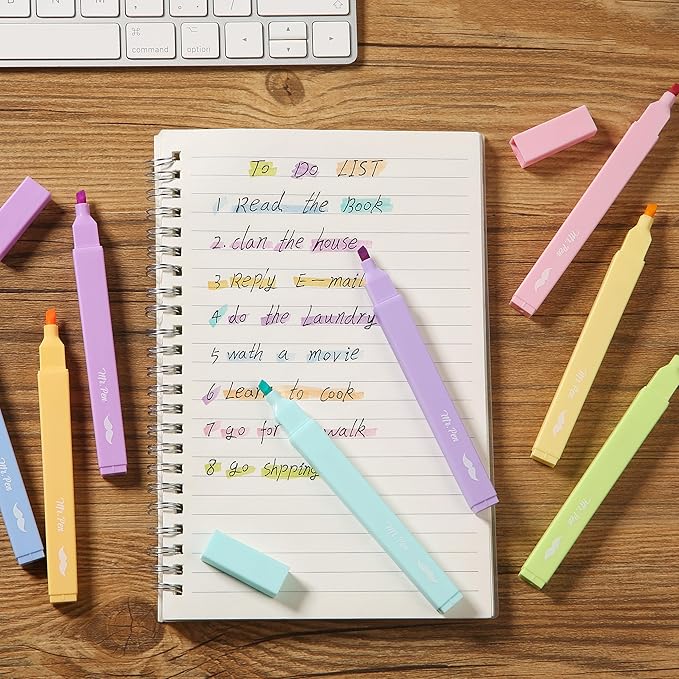 command
option
To Do LIST
1 Read the Book
2. clan the house
3 Reply E-mail
4 do the Laundry
5 wath a movie
6 Learn to cook
7 go for walk
8 go shpping
Mr. Pen
Mr. Pen
Mr. Pen
Mr. Pen
Mr. Pen
Mr. Pen
Mr. Pen
Mr. Pen